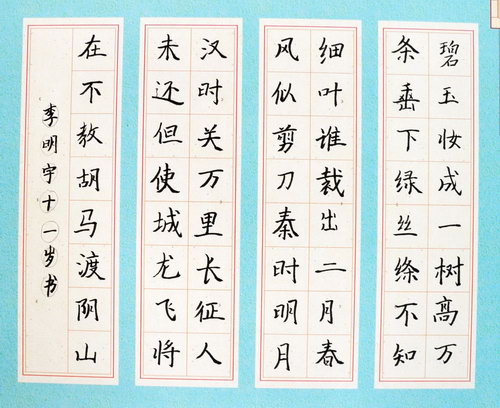 碧玉妆成一树高万
条垂下绿丝绦不知
细叶谁裁出二月春
风似剪刀秦时明月
汉时关万里长征人
未还但使城龙飞将
在不教胡马渡阴山
李明宇十一岁书